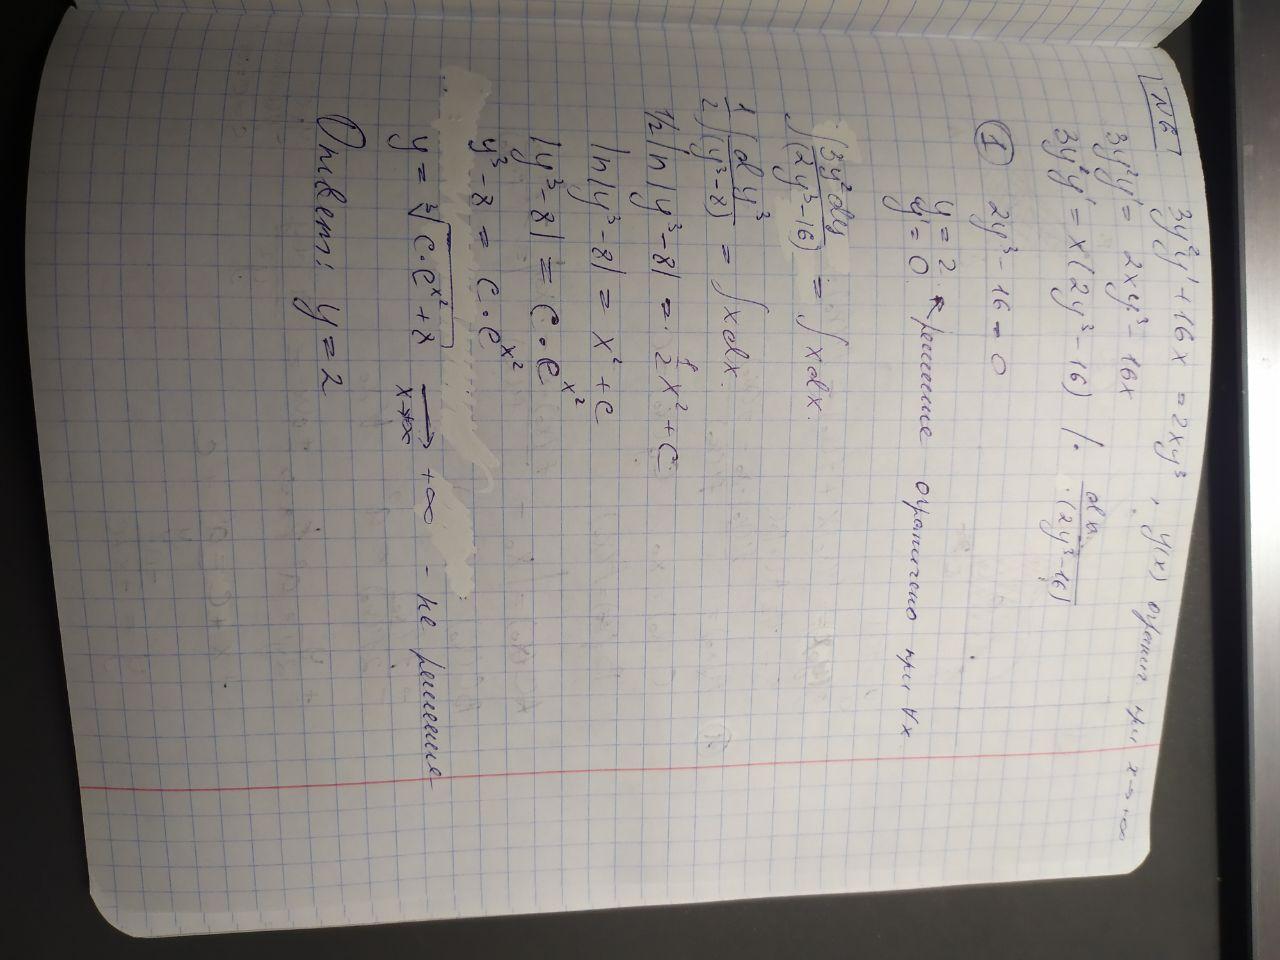 N6 3y²y' + 16x = 2xy³, y(x) огранич при x→+∞
3y²y' = 2xy³ - 16x
3y²y' = x(2y³ - 16) | · dx/(2y³-16)
① 2y³ - 16 = 0
y = 2 ↖ решение ограничено при ∀x
y' = 0
∫ 3y²dy/(2y³-16) = ∫xdx.
1/2 ∫ dy³/(y³-8) = ∫xdx.
1/2 ln|y³-8| = 1/2 x² + c
ln|y³-8| = x² + c
|y³-8| = c·e^x²
y³-8 = c·e^x²
y = ∛(c·e^x²+8) →(x→+∞) +∞ - не решение
Ответ: y = 2